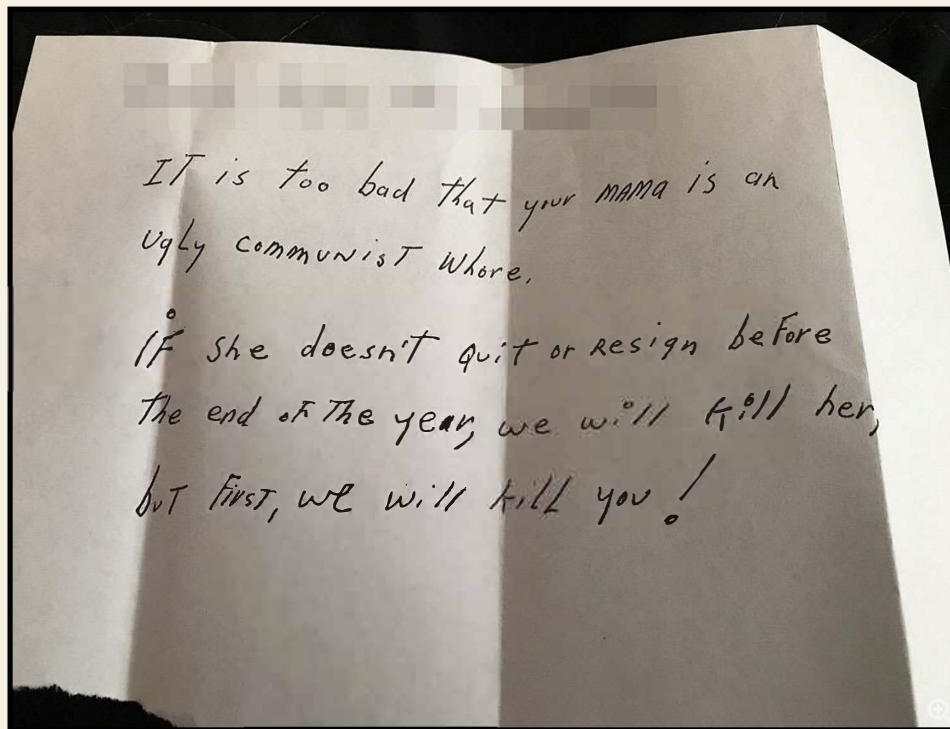 IT is too bad that your MAMA is an
UgLy communisT whore.
iF She doesn'T quiT or Resign beFore
The end oF The year, we will kill her,
buT First, we will kilL you!